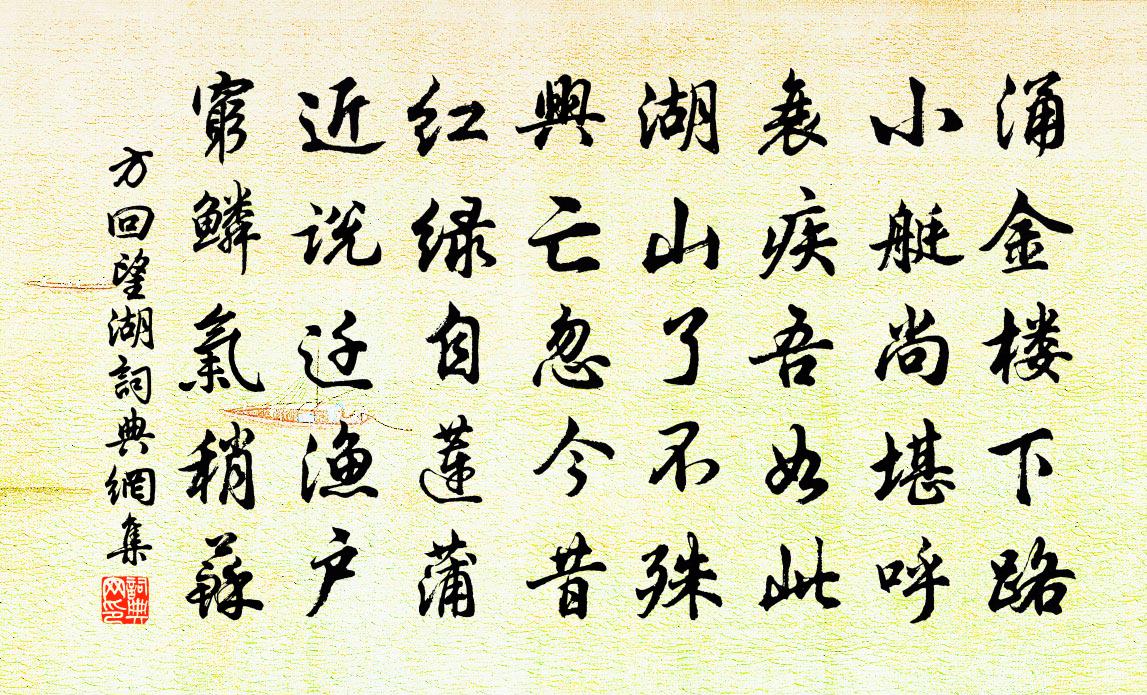 涌金楼下路
小艇尚堪呼
衰疾吾如此
湖山了不殊
興亡忽今昔
红绿自蓮蒲
近说迁漁户
窮鳞氣稍蘇
方回望湖詞典網集
詞典网印